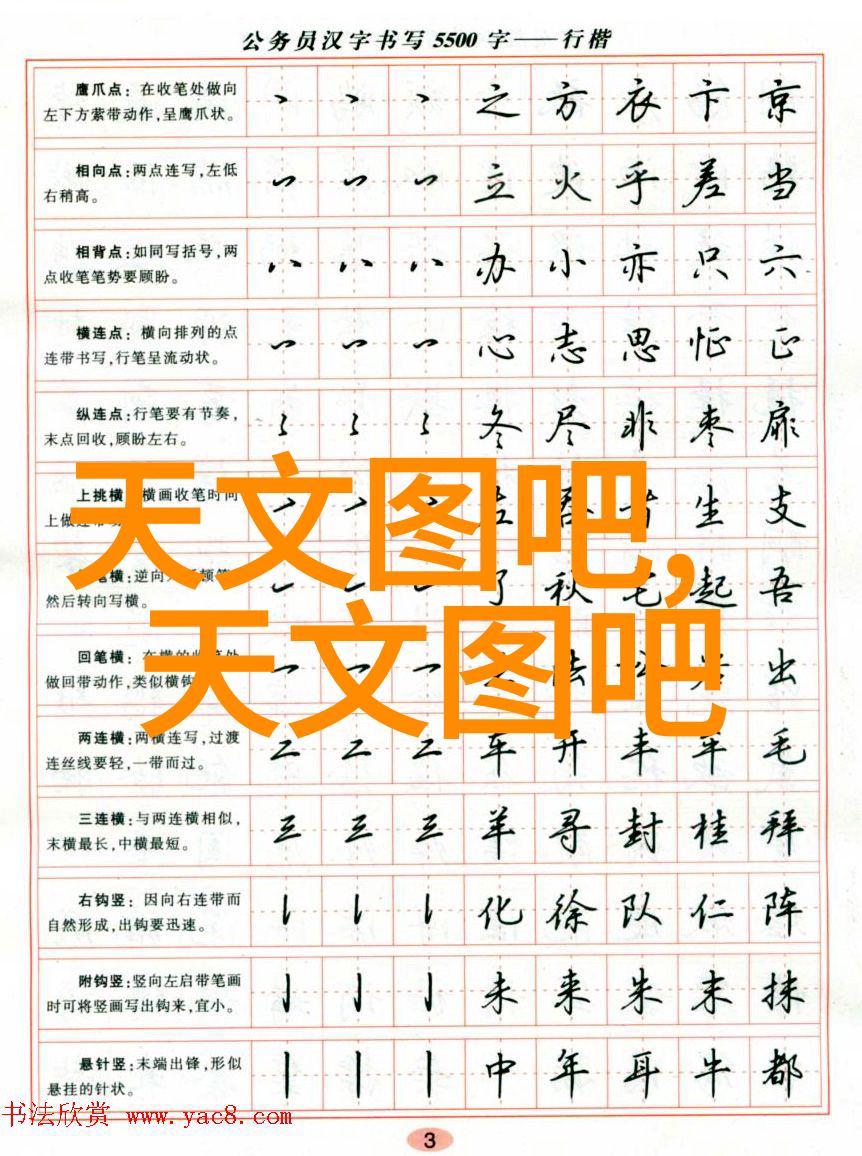 公务员汉字书写5500字——行楷
鹰爪点：在收笔处做向
左下方萦带动作，呈鹰爪状。
之 方 衣 卞 京
相向点：两点连写，左低
右稍高。
立 火 乎 差 当
相背点：如同写括号，两
点收笔笔势要顾盼。
办 小 亦 只 六
横连点：横向排列的点
连带书写，行笔呈流动状。
心 志 思 怔 正
纵连点：行笔要有节奏，
末点回收，顾盼左右。
冬 尽 非 枣 扉
上挑横 横画收笔时向
上做
生 支
天文图吧，
笔横：逆向
然后转向写横。
了 秋 毛 起 吾
回笔横：
做回带动作，类似横钩
法 出
天文图吧
两连横：两横连写，过渡
连丝线要轻，一带而过。
车 开 丰 军 毛
三连横：与两连横相似，
末横最长，中横最短。
羊 寻 封 桂 拜
右钩竖：因向右连带而
自然形成，出钩要迅速。
化 徐 队 仁 阵
附钩竖：竖向左启带笔画
时可将竖画写出钩来，宜小。
未 来 朱 末 抹
悬针竖：末端出锋，形似
悬挂的针状。
中 年 耳 牛 都
书法欣赏 www.yac8.com
3